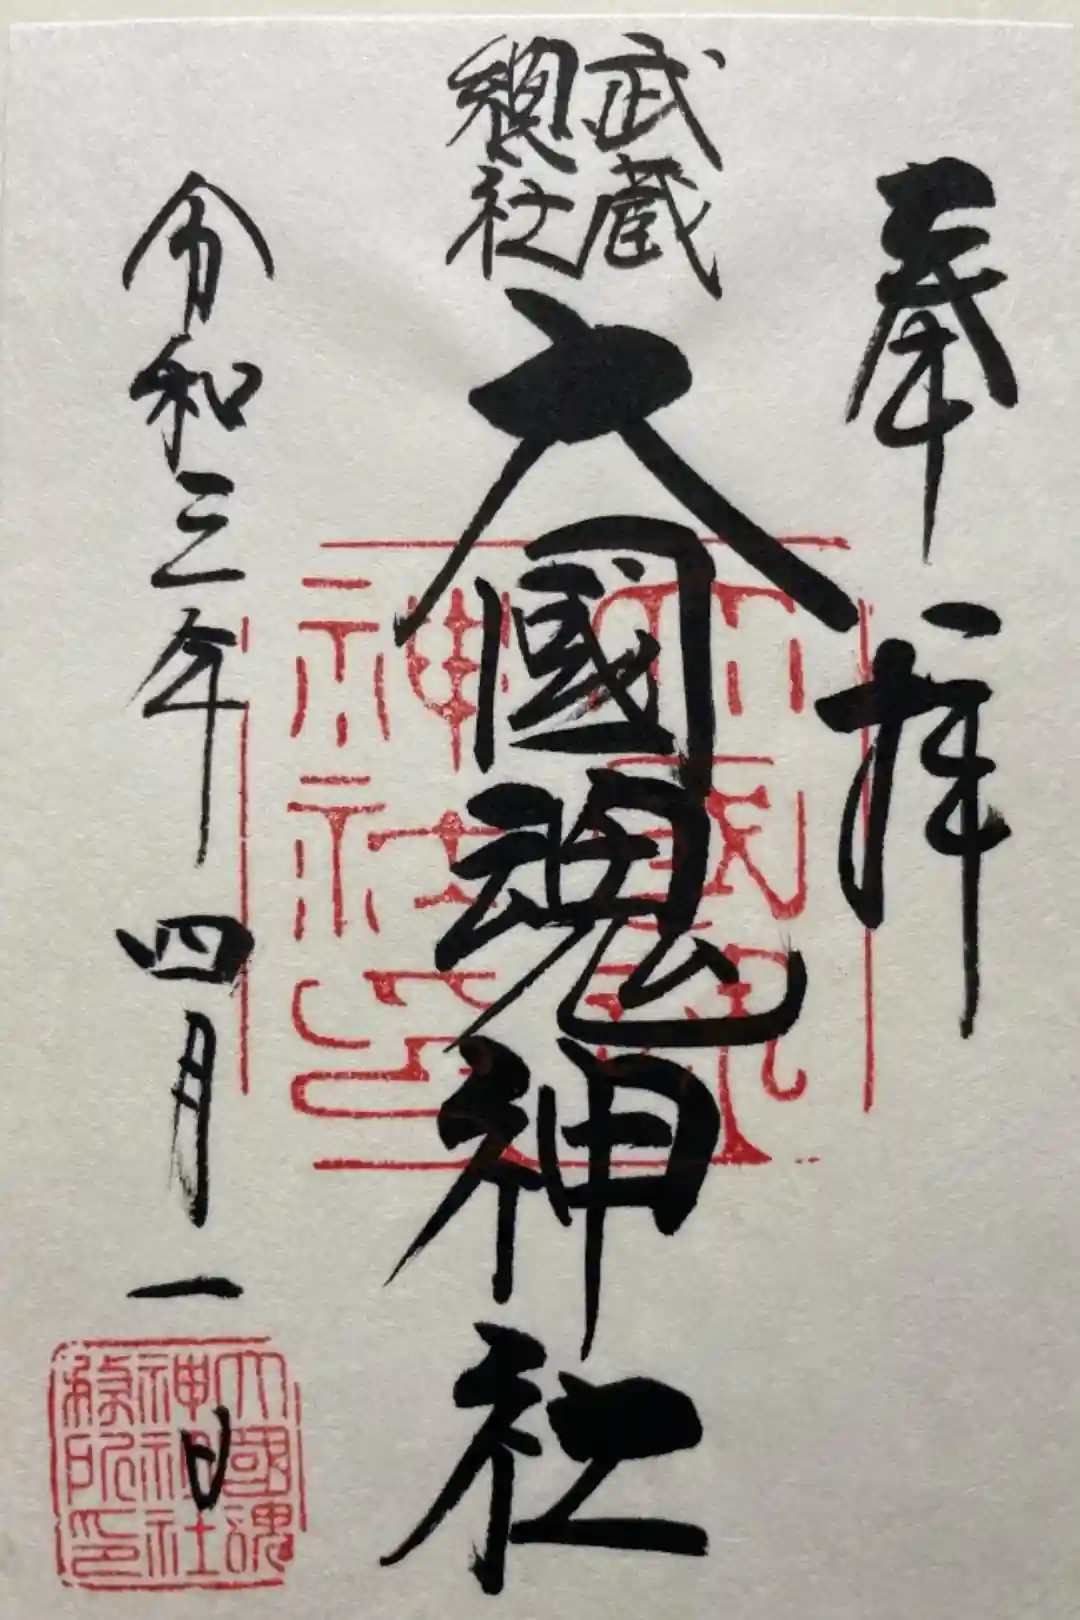 奉拝
武蔵
總社
大國魂神社
令和三年四月一日
大國魂
神社之印
大國魂
神社
務所印